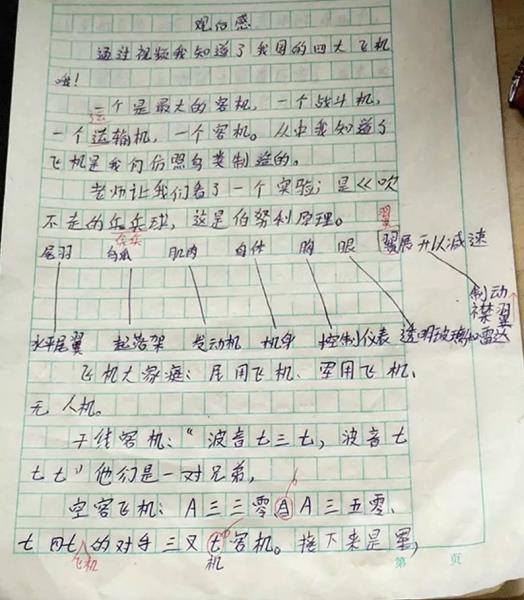 观后感
通过视频我知道了我国的四大飞机
哦!
一个是最大的客机,一个战斗机,
运
一个运输机,一个客机。从中我知道了
飞机是我们仿照鸟类制造的。
老师让我们看了一个实验;是《吹
不走的乒乓球,这是伯努利原理。
乒乓
翼
尾羽 鸟爪 肌肉 身体 胸 眼 翼展开以减速
制动
襟翼
水平尾翼 起落架 发动机 机身 控制仪表 透明玻璃和雷达
飞机大家庭:民用飞机、军用飞机、
无人机。
干线客机:“波音七三七,波音七
七七”他们是一对兄弟,
空客飞机:A三三零 A A三五零、
七 的对手三又七客机。接下来是军,
飞机
机
第 页